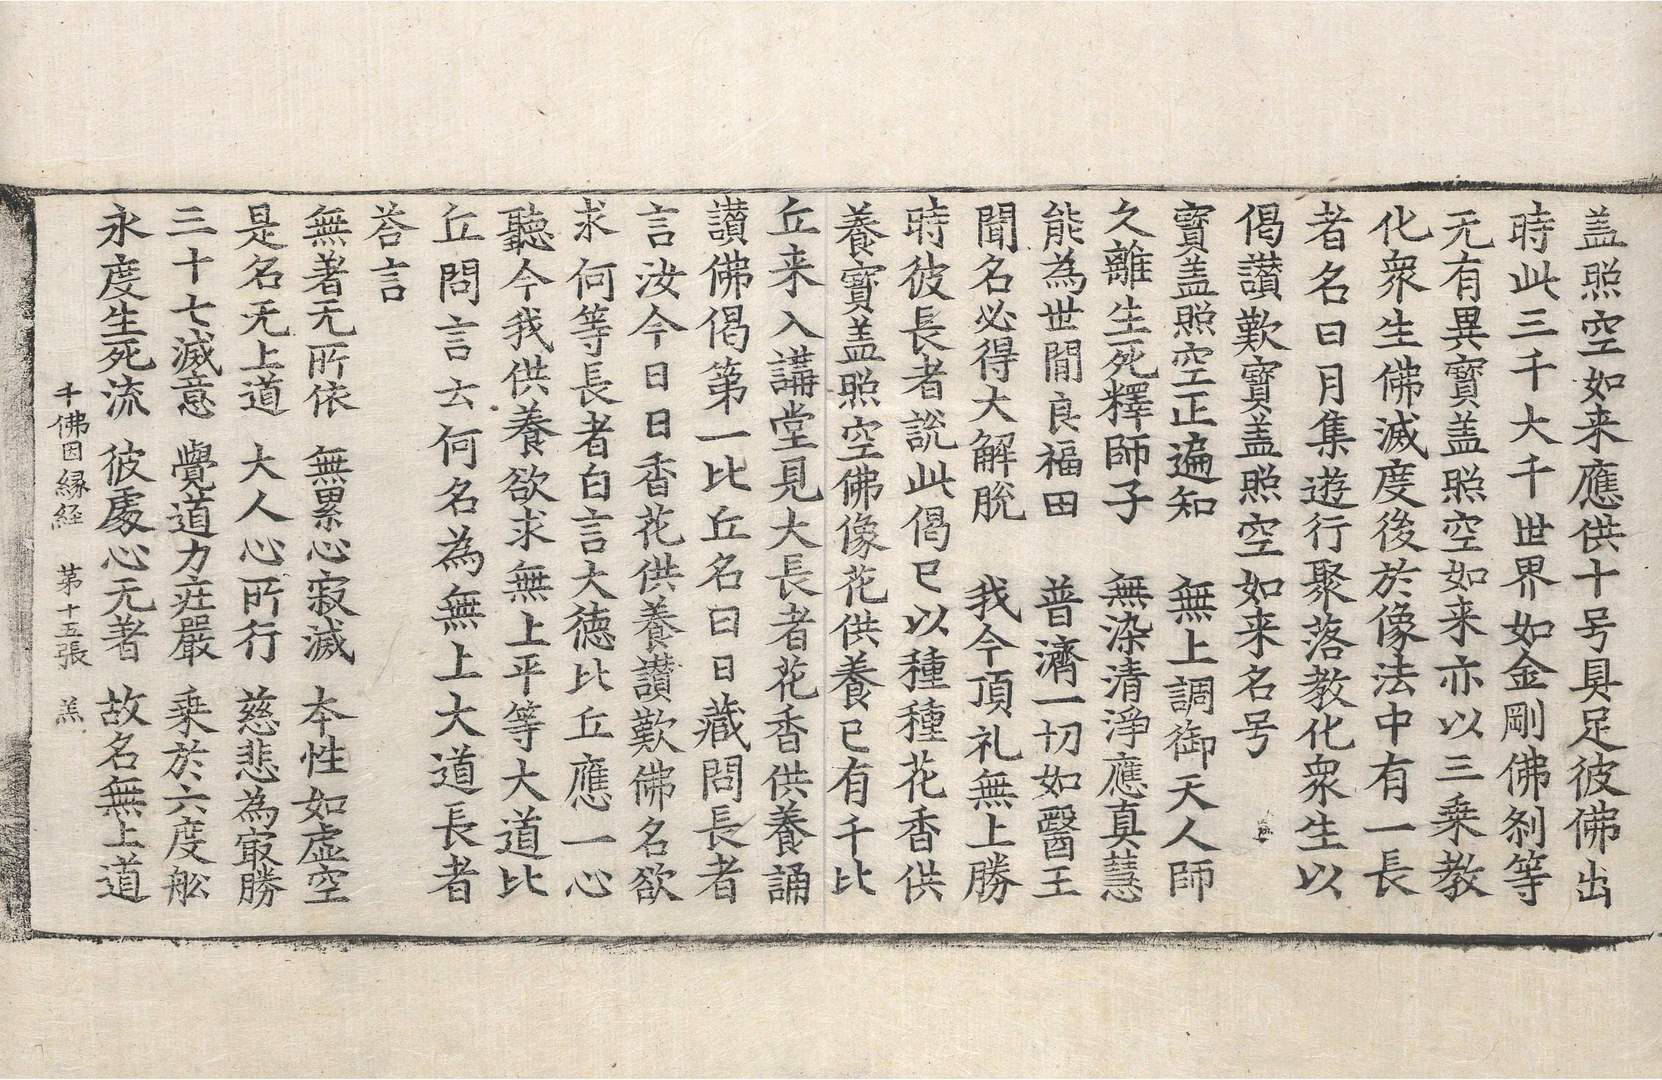 盖照空如来應供十号具足彼佛出
時此三千大千世界如金剛佛刹等
无有異寶盖照空如来亦以三乗教
化衆生佛滅度後於像法中有一長
者名日月集遊行聚落教化衆生以
偈讃歎寶盖照空如来名号
寳盖照空正遍知　無上調御天人師
久離生死釋師子　無染清淨應真慧
能為世間良福田　普濟一切如醫王
聞名必得大解脫　我今頂礼無上勝
時彼長者說此偈已以種種花香供
養寳盖照空佛像花供養已有千比
丘来入講堂見大長者花香供養誦
讃佛偈第一比丘名日日藏問長者
言汝今日日香花供養讃歎佛名欲
求何等長者白言大德比丘應一心
聽今我供養欲求無上平等大道比
丘問言云何名為無上大道長者
荅言
無著无所依　無累心寂滅　本性如虛空
是名无上道　大人心所行　慈悲為㝡勝
三十七滅意　覺道力莊嚴　乗於六度舩
永度生死流　彼處心无著　故名無上道
千佛因縁経　第十五張　羔